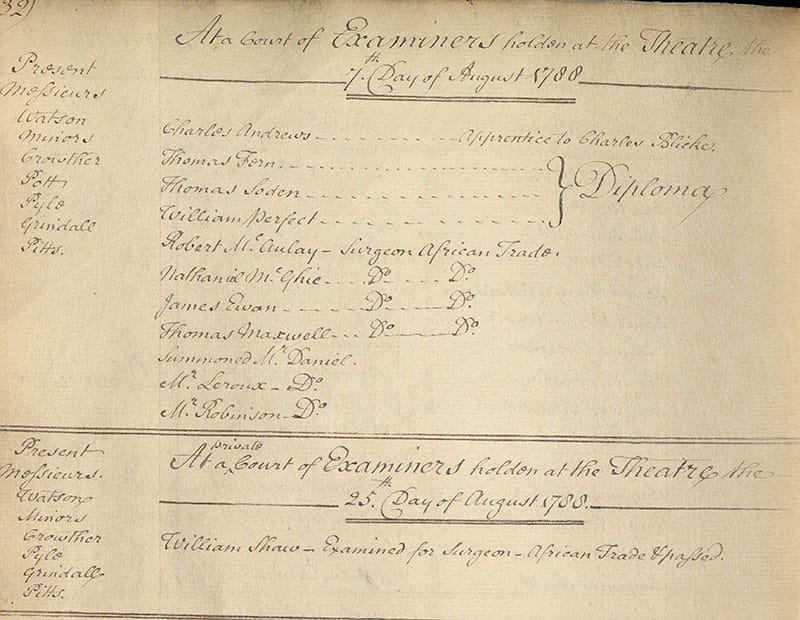 32)
At a Court of Examiners holden at the Theatre the
7.th Day of August 1788
Present
Messieurs
Watson
Minors
Crowther
Pott
Pyle
Grindall
Pitts.
Charles Andrews - - - - - - - - Apprentice to Charles Blicke.
Thomas Fern. - - - - - - - - - - - -
Thomas Soden - - - - - - - - - - - - } Diploma
William Perfect - - - - - - - - - - - -
Robert Mc.Aulay - Surgeon African Trade.
Nathaniel Mc.Ghie - - - - Do. - - - Do.
James Ewan - - - - - Do. - - - Do.
Thomas Maxwell - - - Do. - - - Do.
Summoned Mr. Daniel.
Mr. Leroux - Do.
Mr. Robinson - Do.
At a private Court of Examiners holden at the Theatre the
25.th Day of August 1788.
Present
Messieurs.
Watson
Minors
Crowther
Pyle
Grindall
Pitts.
William Shaw - Examined for Surgeon - African Trade & passed.